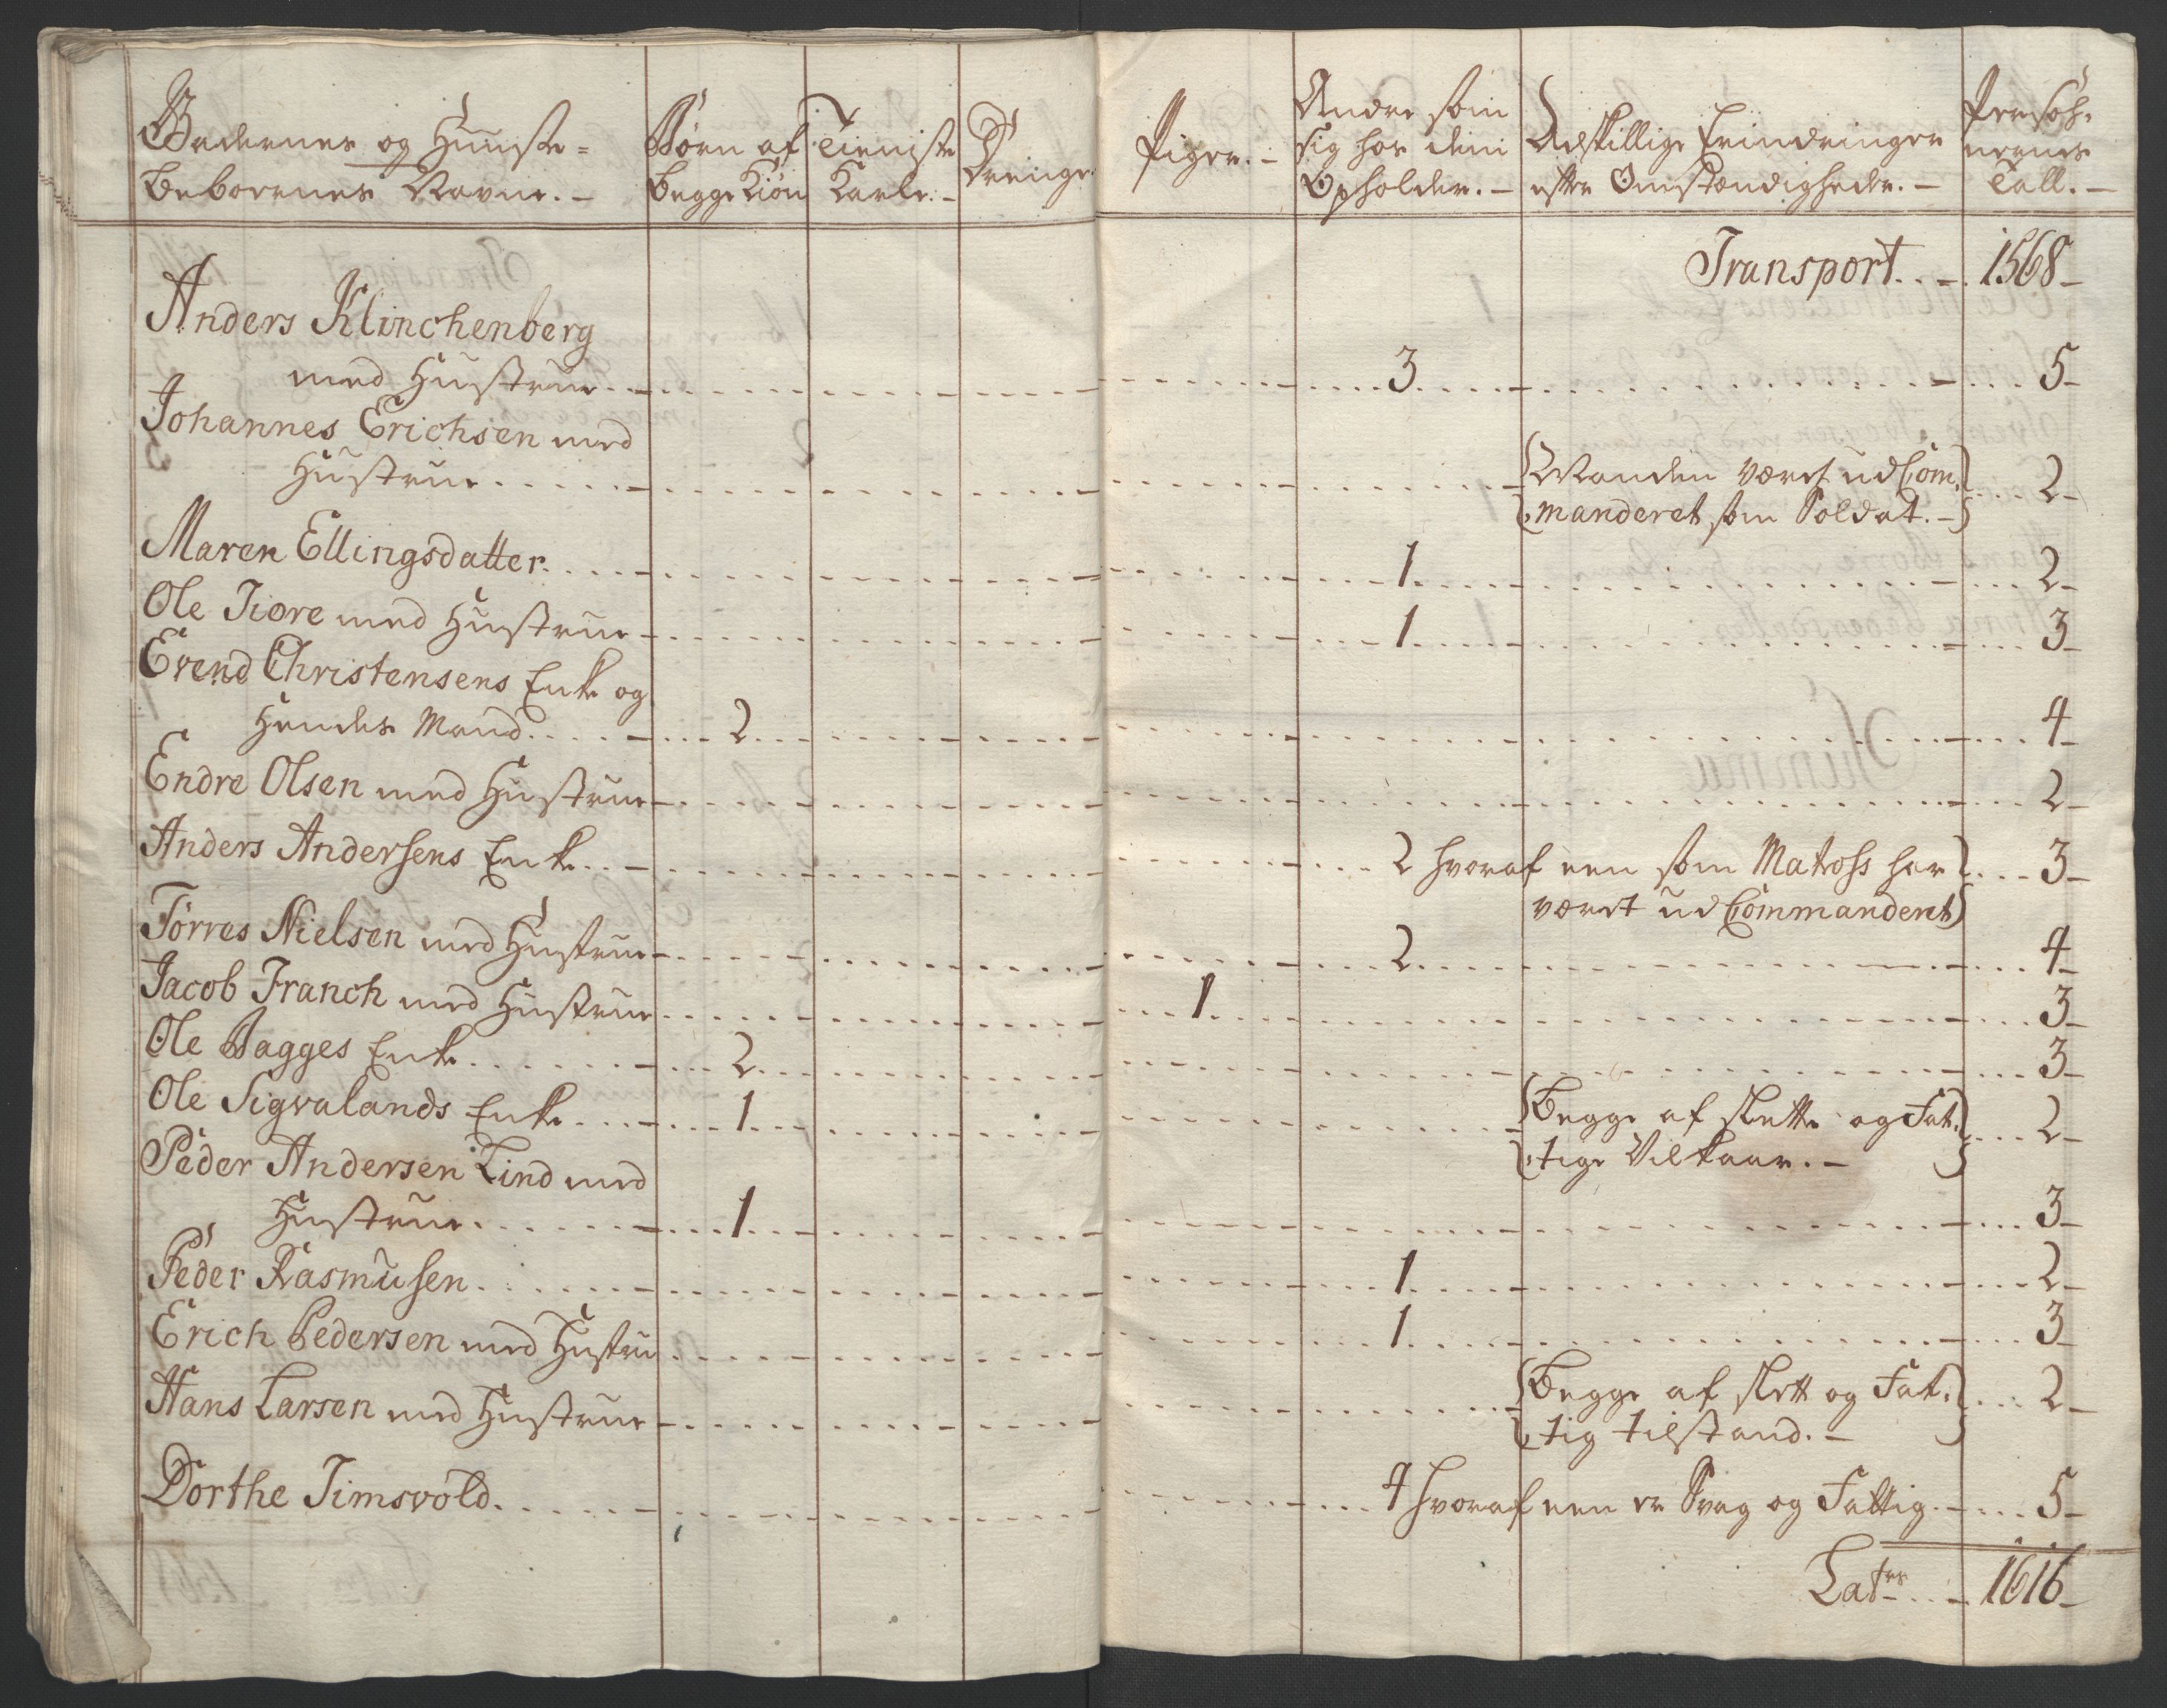 Gadernes og Huusse=
beboernes Navne. –
Børn af
begge Kiøn
Tieniste
Karle. –
Drenge.
Piger. –
Andre som
sig hos dem
Opholder. –
Adskillige Erindringer
efter Omstændighede. –
Persoh=
nernes
Tall. –
Transport . . – 1568 –
Anders Klinchenberg
med Hustrue . . – 3 5 –
Johannes Erichsen med
Hustrue . . . . . – Manden været ud Com= 2 –
manderet som Soldat. –
Maren Ellingsdatter . . . . – 1 2 –
Ole Tiore med Hustrue – 1 3 –
Evend Christensens Enke og
Hendes Mand . . . . – 2 4 –
Endre Olsen med Hustrue – 2 –
Anders Andersens Enke . . – 2 hvoraf een som Matross har 3 –
været ud Commanderet
Törres Nielsen med Hustrue – 2 4 –
Jacob Franch med Hustrue 1 3 –
Ole Bagges Enke . . . . . – 2 3 –
Ole Sigvalands Enke . . . – 1 Begge af slette og Fat= 2 –
tige Vilkaar. –
Peder Andersen Lind med
Hustrue . . . . . – 1 3 –
Peder Rasmusen . . . . . – 1 2 –
Erich Pedersen med Hustru 1 3 –
Hans Larsen med Hustrue – Begge af slett og Fat= 2 –
tig tilstand. –
Dorthe Timsvold . . . . . – 4 hvoraf een er Svag og Fattig. – 5 –
Latrs . . – 1616 –